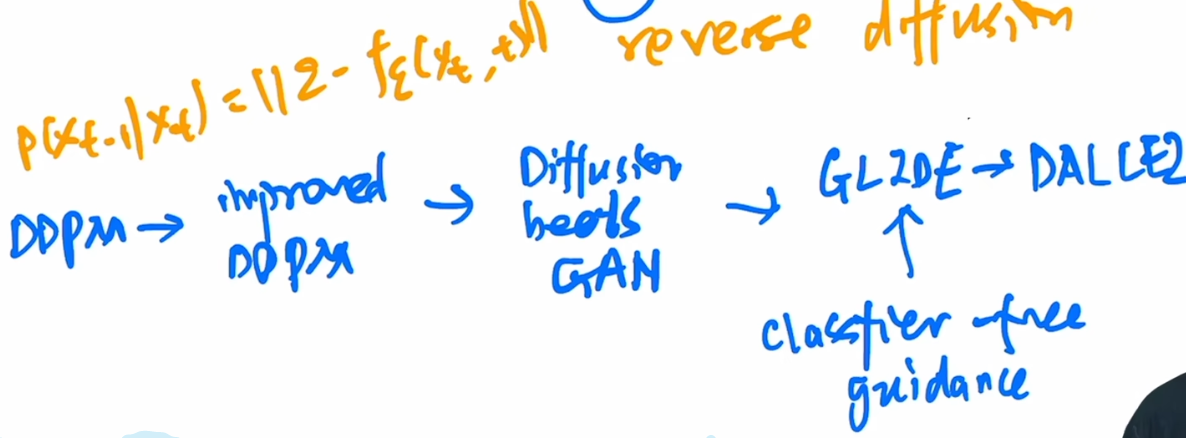 p(xt-1|xt) = ||ε - fε(xt, t)|| reverse diffusion
DDPM → improved DDPM → Diffusion beats GAN → GLIDE → DALLE2
↑
classfier-free
guidance